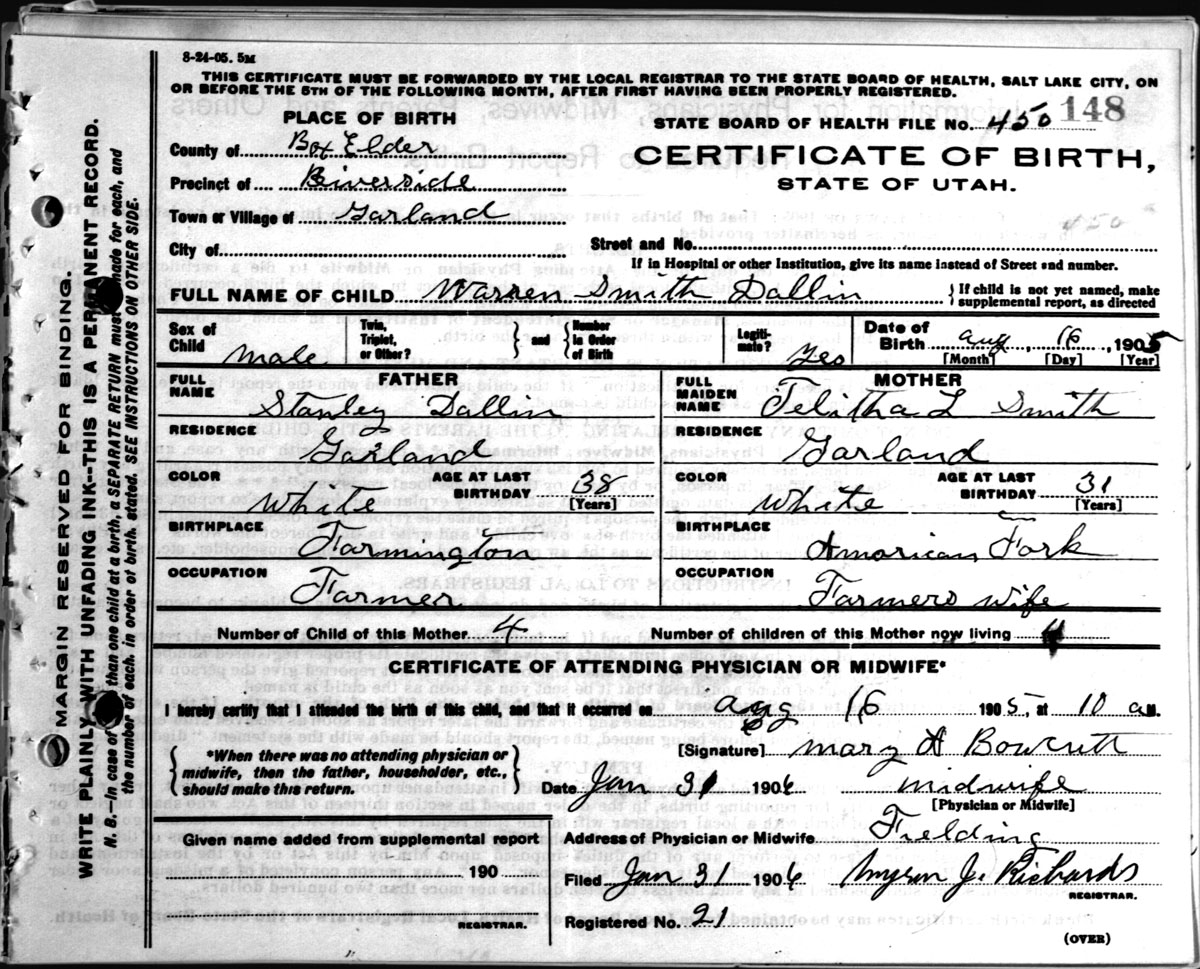 8-24-05. 5M
THIS CERTIFICATE MUST BE FORWARDED BY THE LOCAL REGISTRAR TO THE STATE BOARD OF HEALTH, SALT LAKE CITY, ON
OR BEFORE THE 5TH OF THE FOLLOWING MONTH, AFTER FIRST HAVING BEEN PROPERLY REGISTERED.
PLACE OF BIRTH
County of Box Elder
Precinct of Riverside
Town or Village of Garland
City of
STATE BOARD OF HEALTH FILE No. 450 148
CERTIFICATE OF BIRTH,
STATE OF UTAH.
450
Street and No.
If in Hospital or other Institution, give its name instead of Street and number.
FULL NAME OF CHILD Warren Smith Dallin { If child is not yet named, make
supplemental report, as directed
Sex of Child Male Twin, Triplet, or Other? } and { Number in Order of Birth Legiti-mate? Yes Date of Birth Aug 16, 1905
[Month] [Day] [Year]
FATHER
FULL NAME Stanley Dallin
RESIDENCE Garland
COLOR White AGE AT LAST BIRTHDAY 38
[Years]
BIRTHPLACE Farmington
OCCUPATION Farmer
MOTHER
FULL MAIDEN NAME Telitha L Smith
RESIDENCE Garland
COLOR White AGE AT LAST BIRTHDAY 31
[Years]
BIRTHPLACE American Fork
OCCUPATION Farmers wife
Number of Child of this Mother 4 Number of children of this Mother now living 4
CERTIFICATE OF ATTENDING PHYSICIAN OR MIDWIFE*
I hereby certify that I attended the birth of this child, and that it occurred on Aug 16 1905, at 10 a M.
{ *When there was no attending physician or
midwife, then the father, householder, etc.,
should make this return. }
[Signature] Mary A Bowcutt
Date Jan 31 1906 midwife
[Physician or Midwife]
Given name added from supplemental report
190
REGISTRAR.
Address of Physician or Midwife Fielding
Filed Jan 31 1906 Myron J. Richards
REGISTRAR.
Registered No. 21
(OVER)
MARGIN RESERVED FOR BINDING.
WRITE PLAINLY WITH UNFADING INK--THIS IS A PERMANENT RECORD.
N. B.--In case of than one child at a birth, a SEPARATE RETURN must made for each, and
the number of each, in order of birth, stated. SEE INSTRUCTIONS ON OTHER SIDE.